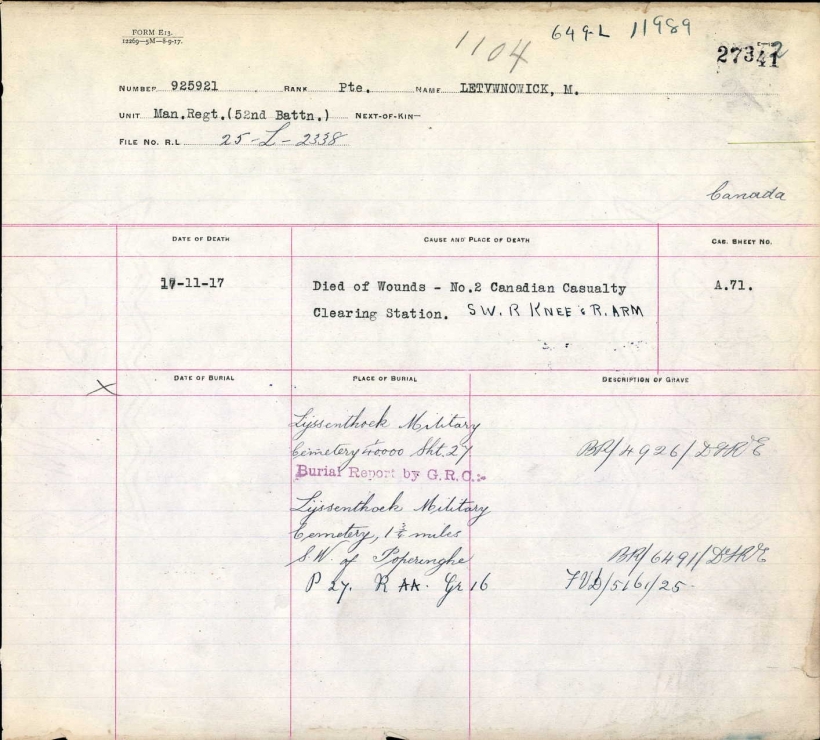 FORM E13.
12269—5M—8-9-17.
1104
649-L 11989
27341 2
NUMBER 925921 RANK Pte. NAME LETVWNOWICK, M.
UNIT Man.Regt.(52nd Battn.) NEXT-OF-KIN—
FILE NO. R.L. 25-L-2338
Canada
DATE OF DEATH CAUSE AND PLACE OF DEATH CAS. SHEET NO.
17-11-17 Died of Wounds - No.2 Canadian Casualty A.71.
Clearing Station. SW. R KNEE & R. ARM
X DATE OF BURIAL PLACE OF BURIAL DESCRIPTION OF GRAVE
Lijssenthoek Military
Cemetery 40000 Sht. 27 BR/4926/DGR&E
Burial Report by G.R.C:-
Lijssenthoek Military
Cemetery, 1¾ miles
S.W. of Poperinghe BR/6491/DGR&E
P 27. R AA. Gr 16 FVD/5161/25